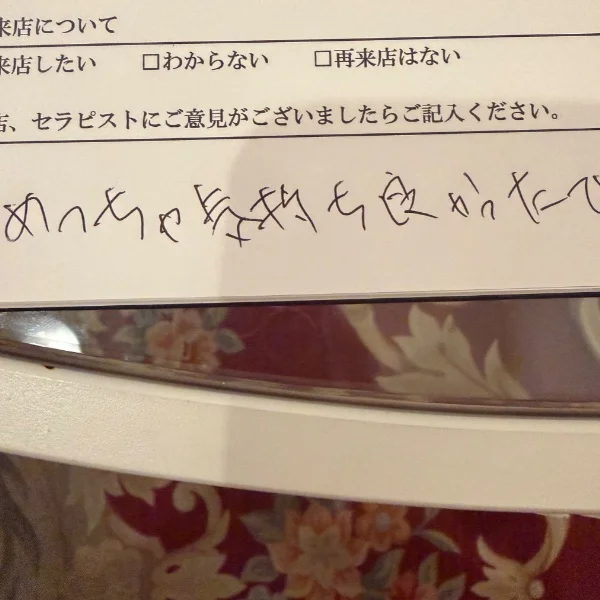 来店について
来店したい □わからない □再来店はない
店、セラピストにご意見がございましたらご記入ください。
めっちゃ気持ち良かったで